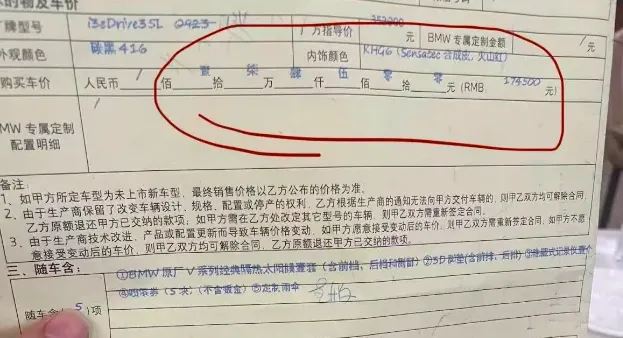 的物及车价
牌型号 i3eDrive35L 0923 厂方指导价 353900 元 BMW 专属定制金额 / 元
外观颜色 碳黑416 内饰颜色 KHG6 (Sensatec 合成皮, 火山红)
购买车价 人民币 / 佰 壹 拾 柒 万 肆 仟 伍 佰 零 拾 零 元 (RMB: 174500 元)
MW 专属定制
配置明细
/
备注:
1、如甲方所定车型为未上市新车型,最终销售价格以乙方公布的价格为准。
2、由于生产商保留了改变车辆设计、规格、配置或停产的权利,乙方根据生产商的通知无法向甲方交付车辆的,则甲乙双方可解除合同,
乙方原额退还甲方已交纳的款项;如甲方需在乙方处改定其它型号的车辆,则甲乙双方需重新签定合同。
3、由于生产商技术改进、产品或配置更新而导致车辆价格变动,如甲方愿意接受变动后的车价,则甲乙双方需重新签定合同,如甲方不愿
意接受变动后的车价,则甲乙双方均可解除合同,乙方原额退还甲方已交纳的款项。
三、随车含:
①BMW原厂V系列经典隔热太阳膜壹套(含前档、后档和侧窗)②3D脚垫(含前排、后排)③隐藏式记录仪壹个
随车含 5 项 (5次)(不含钣金)⑤定制雨伞